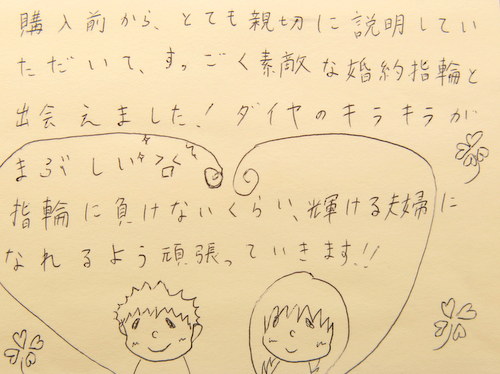 購入前から、とても親切に説明してい
ただいて、すっごく素敵な婚約指輪と
出会えました！ダイヤのキラキラが
まぶしい
指輪に負けないくらい、輝ける夫婦に
なれるよう頑張っていきます!!